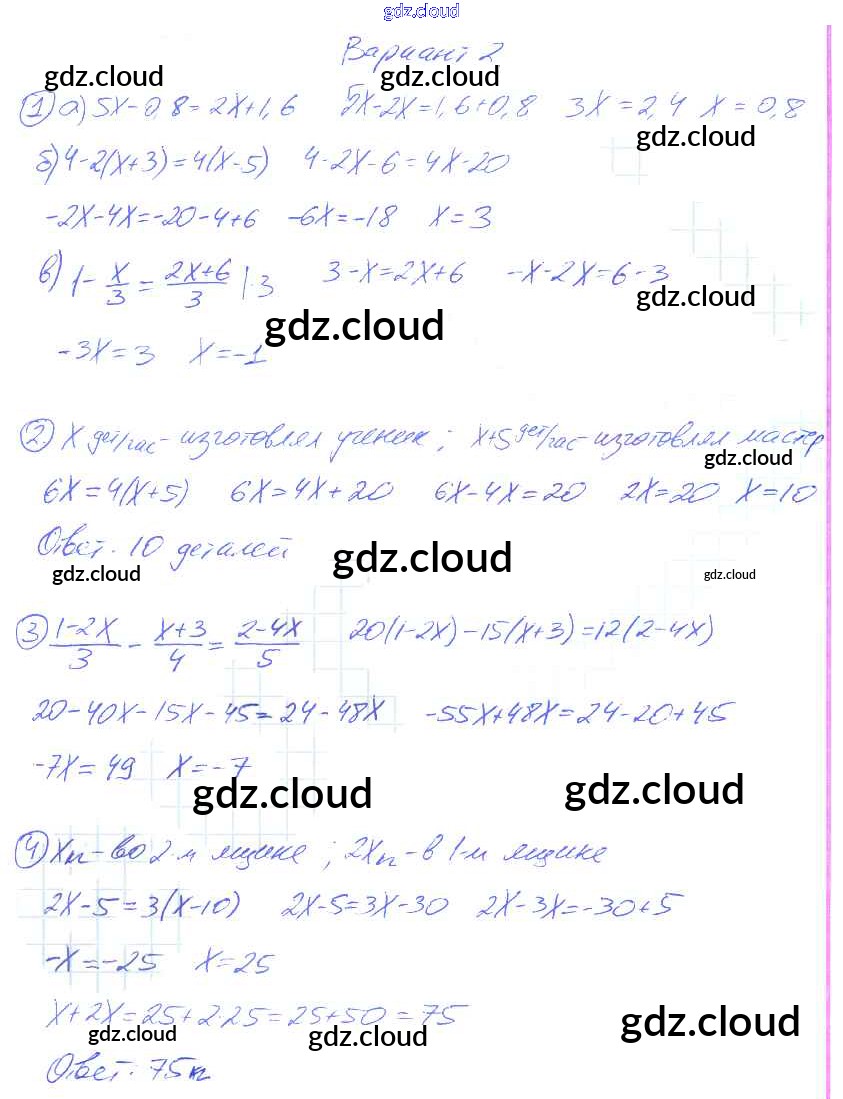 gdz.cloud
Вариант 2
gdz.cloud gdz.cloud
① а) 5x-0,8=2x+1,6 5x-2x=1,6+0,8 3x=2,4 x=0,8
gdz.cloud
б) 4-2(x+3)=4(x-5) 4-2x-6=4x-20
-2x-4x=-20-4+6 -6x=-18 x=3
в) 1-x/3=(2x+6)/3 |·3 3-x=2x+6 -x-2x=6-3
gdz.cloud
gdz.cloud
-3x=3 x=-1
② x дет/час - изготовлял ученик; x+5 дет/час - изготовлял мастер
gdz.cloud
6x=4(x+5) 6x=4x+20 6x-4x=20 2x=20 x=10
Ответ. 10 деталей
gdz.cloud gdz.cloud gdz.cloud
③ (1-2x)/3 - (x+3)/4 = (2-4x)/5 20(1-2x)-15(x+3)=12(2-4x)
20-40x-15x-45=24-48x -55x+48x=24-20+45
-7x=49 x=-7
gdz.cloud gdz.cloud
④ x я - во 2-м ящике; 2x я - в 1-м ящике
2x-5=3(x-10) 2x-5=3x-30 2x-3x=-30+5
-x=-25 x=25
x+2x=25+2·25=25+50=75
gdz.cloud gdz.cloud gdz.cloud
Ответ: 75 я